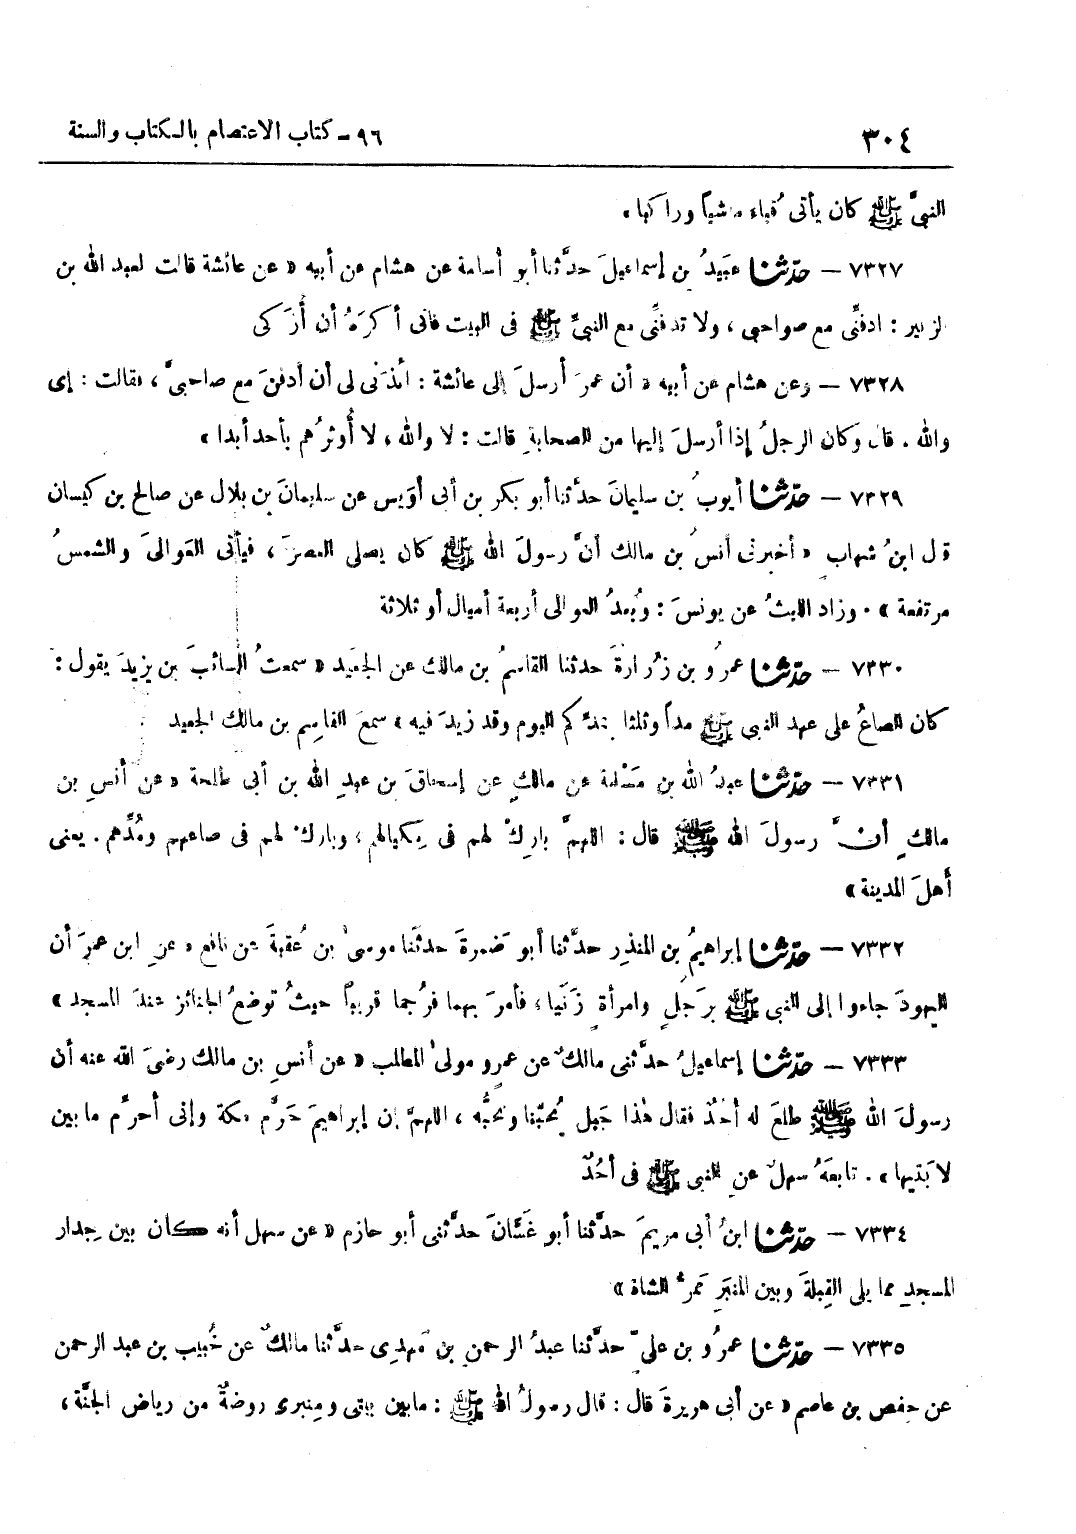 ٣٠٤ ٩٦ - كتاب الاعتصام بالكتاب والسنة
النبيَّ ﷺ كان يأتى قُباء ماشياً وراكبا»
٧٣٢٧ — حدّثنا عبَيدُ بن إسماعيلَ حدَّثنا أبو أسامة عن هشام عن أبيه « عن عائشة قالت لعبد الله بن
الزبير : ادفنِّى مع صواحبى ، ولا تدفنِّى مع النبيِّ ﷺ فى البيت فانى أكرَهُ أن أُزَكى
٧٣٢٨ — وعن هشام عن أبيه « أن عمرَ أرسلَ إلى عائشة : ائذَنى لى أن أدفنَ مع صاحبىَّ ، فقالت : إى
والله . قال وكان الرجلُ إذا أرسلَ إليها من الصحابةِ قالت : لا والله ، لا أُوثرُهم بأحد أبدا »
٧٣٢٩ — حدّثنا أيوبُ بن سليمانَ حدَّثنا أبو بكر بن أبى أوَيس عن سليمانَ بن بلال عن صالح بن كيسان
قال ابنُ شهاب « أخبرنى أنسُ بن مالك أنَّ رسولَ الله ﷺ كان يصلى العصرَ ، فيأتى العَوالىَ والشمسُ
مرتفعة » . وزاد الليثُ عن يونسَ : وبُعدُ العوالى أربعة أميال أو ثلاثة
٧٣٣٠ — حدّثنا عمرُو بن زُرارةَ حدثنا القاسمُ بن مالك عن الجعَيد « سمعتُ السائبَ بن يزيدَ يقول :
كان الصاعُ على عهد النبى ﷺ مداً وثلثا بمدِّكم اليوم وقد زيدَ فيه » سمعَ القاسم بن مالك الجعيد
٧٣٣١ — حدّثنا عبدُ الله بن مَسْلمة عن مالكٍ عن إسحاقَ بن عبدِ الله بن أبى طلحة « عن أنسِ بن
مالكٍ أنَّ رسولَ الله ﷺ قال : اللهمَّ بارِكْ لهم فى مِكيالهم ، وباركْ لهم فى صاعهم ومُدِّهم . يعنى
أهلَ المدينة »
٧٣٣٢ — حدّثنا إبراهيمُ بن المنذِر حدَّثنا أبو ضَمرةَ حدثَنا موسىٰ بن عُقبةَ عن نافع « عن ابن عمرَ أن
اليهودَ جاءوا إلى النبى ﷺ برَجلٍ وامرأةٍ زَنَيا ، فأمرَ بهما فرُجما قريباً حيثُ توضعُ الجنائز عندَ المسجد »
٧٣٣٣ — حدّثنا إسماعيلُ حدَّثنى مالكٌ عن عمرٍو مولىٰ المطلب « عن أنسِ بن مالك رضىَ الله عنه أن
رسولَ الله ﷺ طلعَ له أحُدٌ فقال هٰذا جَبل يُحبّنا ونحبُّه ، اللهمَّ إن إبراهيمَ حَرَّم مكة وإنى أحرِّم ما بين
لابَتيها » . تابعَهُ سهلٌ عنِ النبى ﷺ فى أحُدٌ
٧٣٣٤ — حدّثنا ابنُ أبى مريمَ حدَّثنا أبو غَسَّانَ حدَّثنى أبو حازم « عن سهل أنه كان بين جِدار
المسجدِ مما يلى القِبلةَ وبين المنبَرِ ممرُّ الشاة »
٧٣٣٥ — حدّثنا عمرُو بن علىّ حدَّثنا عبدُ الرحمنِ بن مَهدِى حدَّثنا مالكٌ عن خُبيب بن عبد الرحمن
عن حفص بن عاصم « عن أبى هريرةَ قال : قال رسولُ الله ﷺ : مابين بيتى ومِنبرى روضةٌ من رياض الجنَّة ،